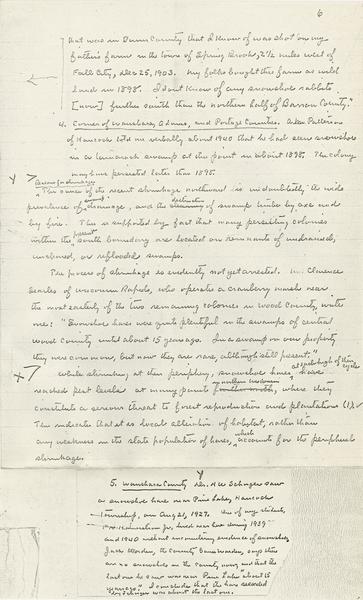 6
that was in Dunn County that I know of was shot on my
father's farm in the town of Spring Brook, 2½ miles west of
Fall City, Dec 25, 1903. My folks bought this farm as wild
land in 1898. I don't know of any snowshoe rabbits
[now] further south than the northern half of Barron County."
4. Corner of Waushara, Adams, and Portage Counties. Allen Patterson
of Hancock told me verbally about 1940 that he had seen snowshoes
in a tamarack swamp at this point in about 1895. The colony
may have persisted later than 1895.
The cause of the recent shrinkage northward is undoubtedly the wide
prevalence of drainage, and the destruction of swamp timber by axe and
by fire. This is supported by fact that many persisting colonies
within the present south boundary are located on remnants of undrained,
unburned, or reflooded swamps.
The process of shrinkage is evidently not yet arrested. Mr. Clarence
Searles of Wisconsin Rapids, who operates a cranberry marsh near
the most easterly of the two remaining colonies in Wood County, writes
me: "Snowshoe hares were quite plentiful in the swamps of central
Wood County until about 15 years ago. In a swamp on our property
they were common, but now they are rare, although still present."
While shrinking at their periphery, snowshoe hares have at the high of their cycles
reached pest levels at many points in northern Wisconsin, where they
constitute a serious threat to forest reproduction and plantations (1).
This indicates that it is local alteration of habitat, rather than
any weakness in the state population of hares, which account for the peripheral
shrinkage.
5. Waushara County. Mr. H W Schorger saw
a snowshoe hare near Pine Lake, Hancock
Township, on Aug 21, 1927. One of my students,
lived near here during 1939
and 1940 without encountering evidence of snowshoes.
the county game warden, says there
are no snowshoes in the county now, and that the
last one he saw was near Pine Lake "about 15
years ago." I conclude that the hare recorded
by Schorger was about the last one.